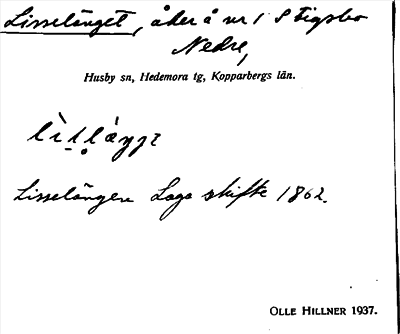 Lisselänget, åker å nr 1 Stigsbo
Nedre,
Husby sn, Hedemora tg, Kopparbergs län.
Lisselängen Laga skifte 1862.
OLLE HILLNER 1937.